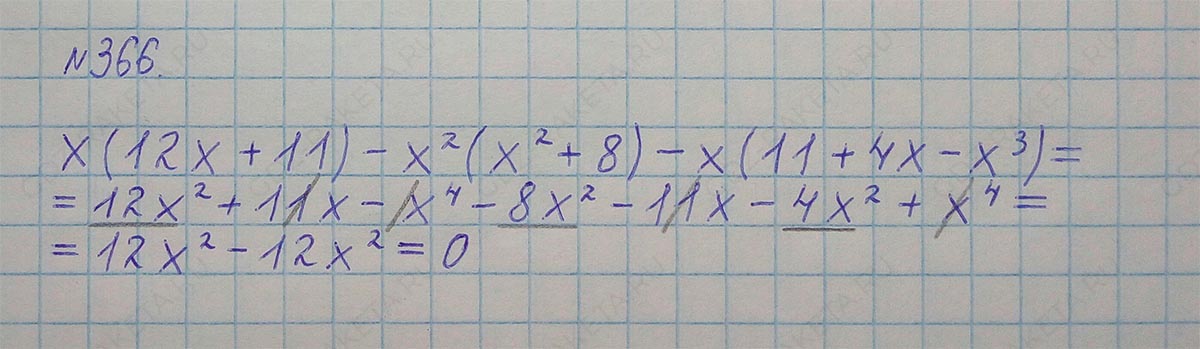 №366.
x(12x+11)-x²(x²+8)-x(11+4x-x³)=
=12x²+11x-x⁴-8x²-11x-4x²+x⁴=
=12x²-12x²=0